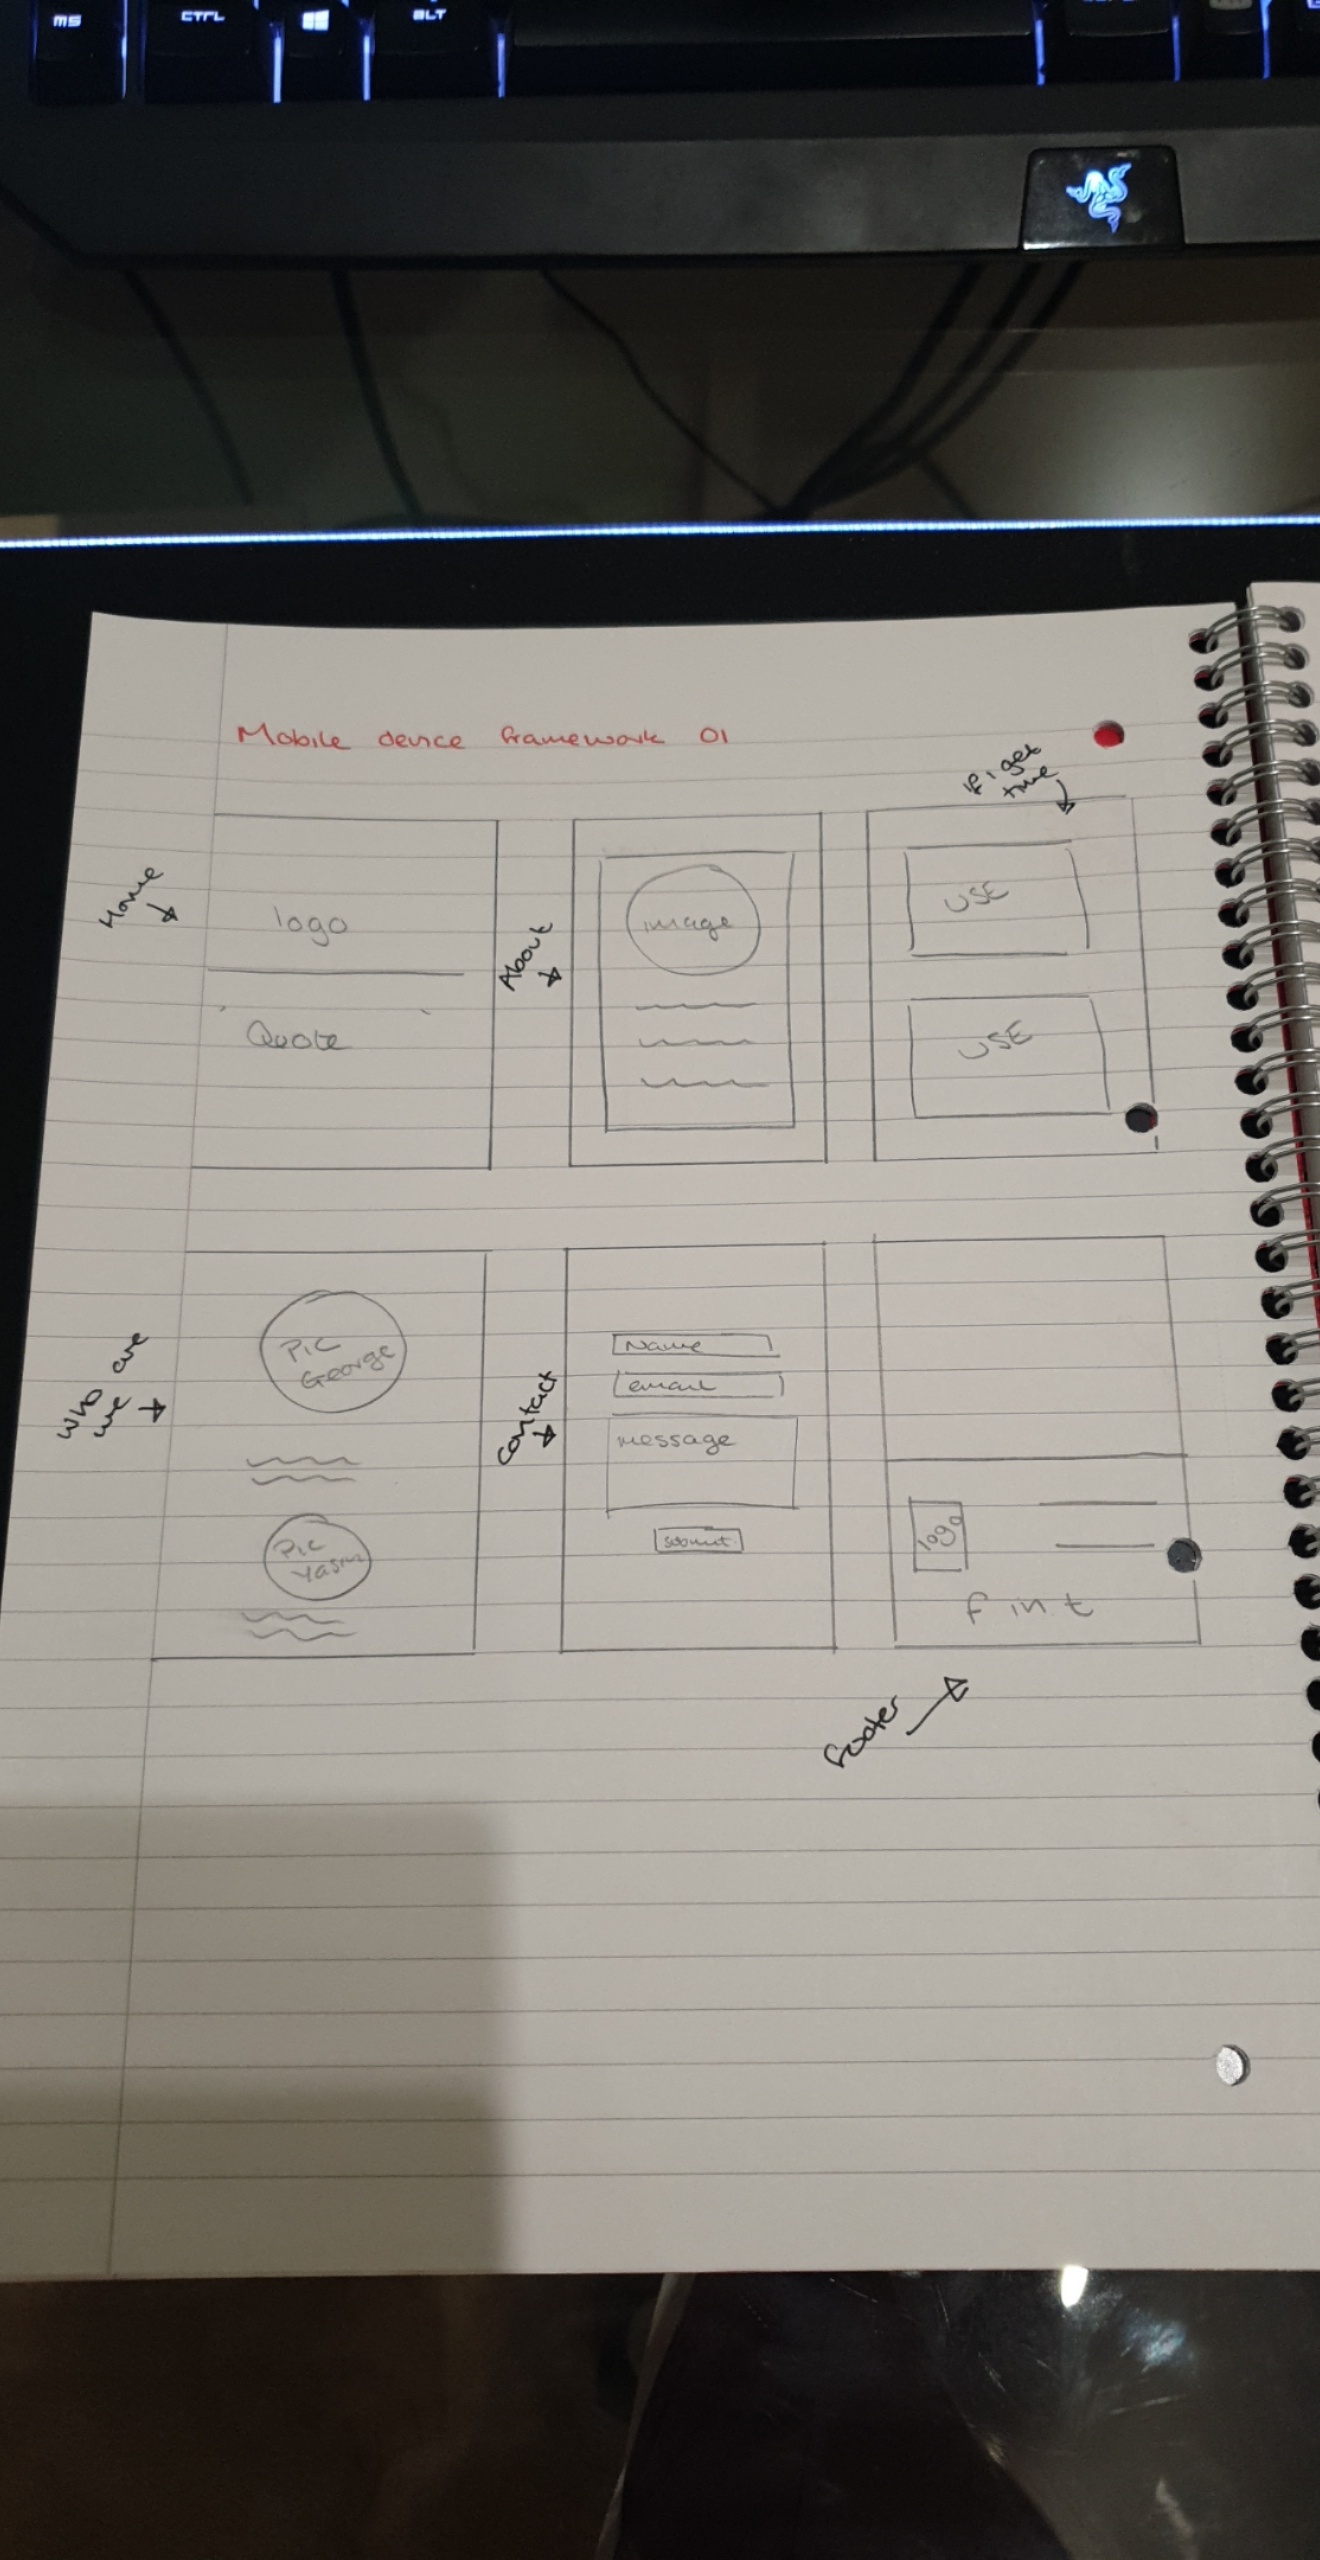 MS
CTRL
ALT
Mobile device framework 01
if i get
time
Home
logo
Quote
About
image
USE
USE
Who are
we
Pic
George
Pic
Yasm
Contact
Name
email
message
submit
logo
f in t
footer